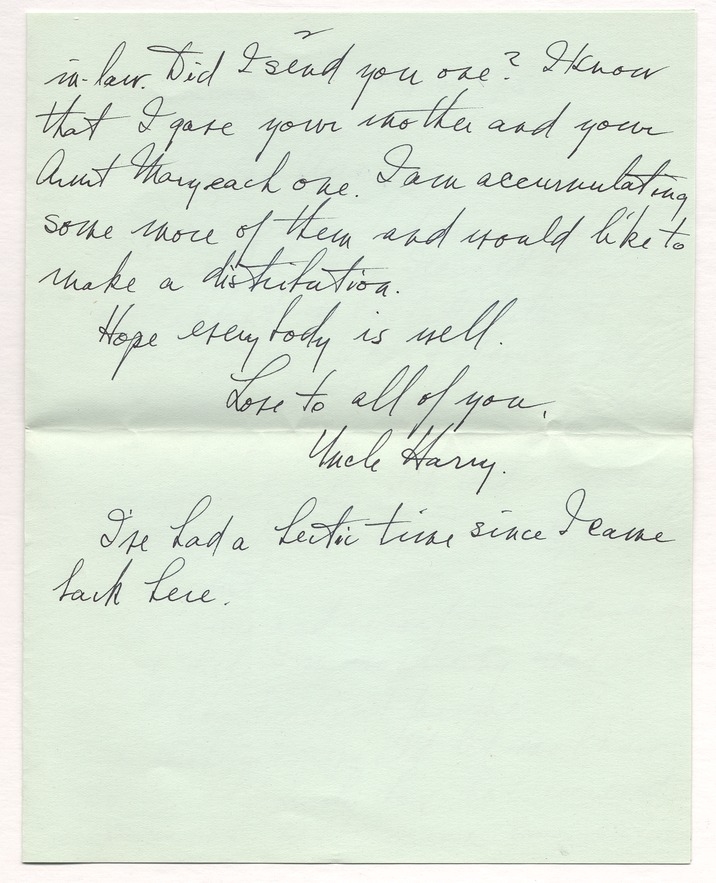 2
in-law. Did I send you one? I know
that I gave your mother and your
Aunt Mary each one. I am accumulating
some more of them and would like to
make a distribution.
Hope everybody is well.
Love to all of you,
Uncle Harry.
I've had a hectic time since I came
back here.